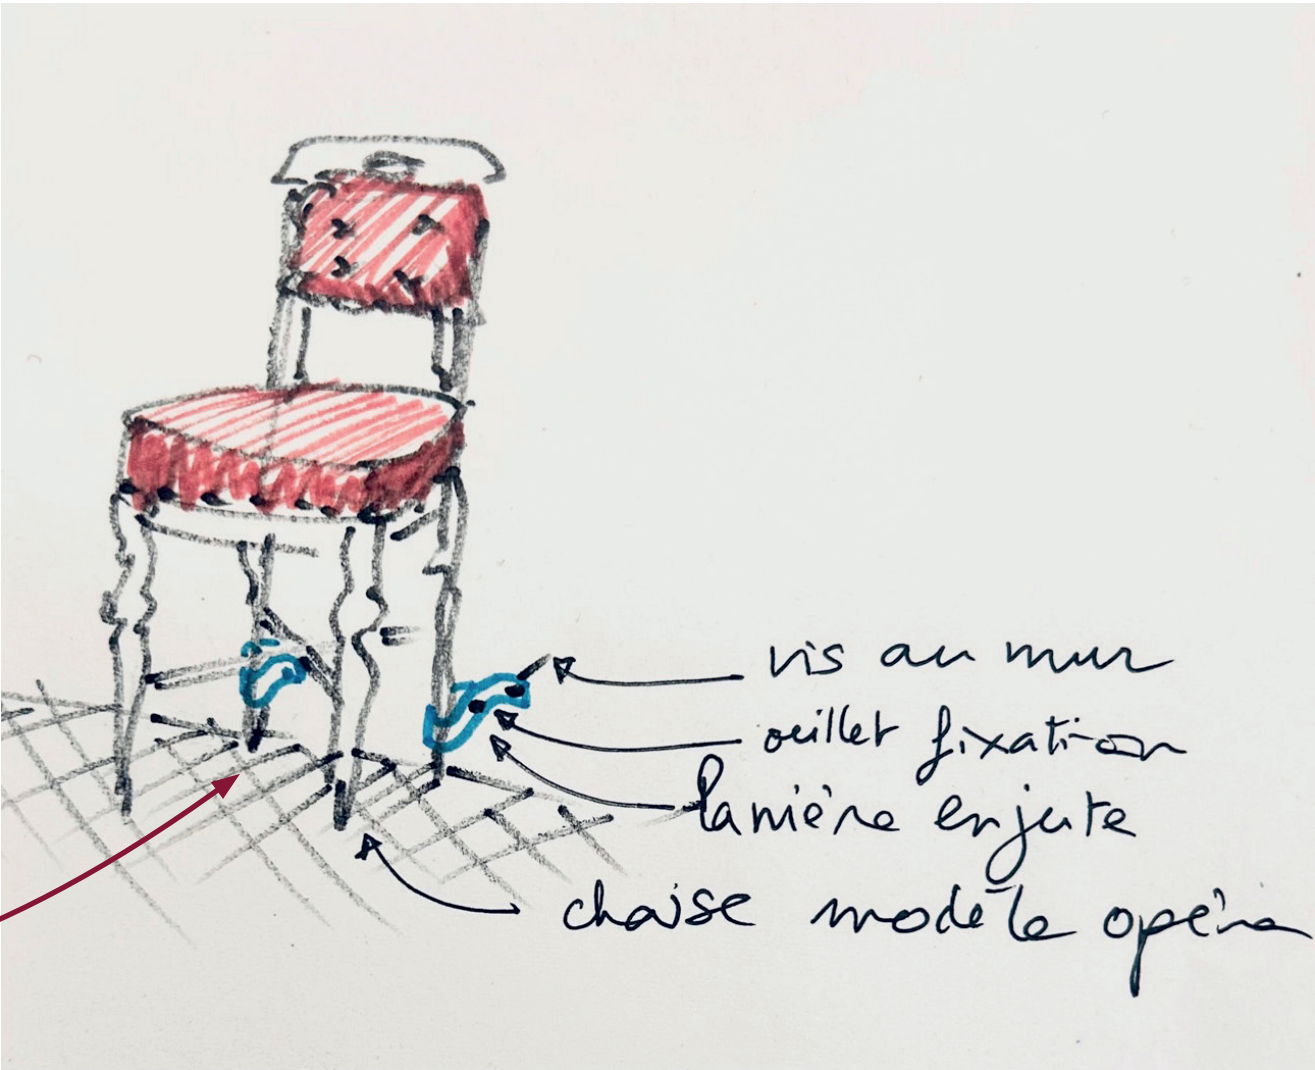 vis au mur
œillet fixation
lanière en jute
chaise modèle opéra